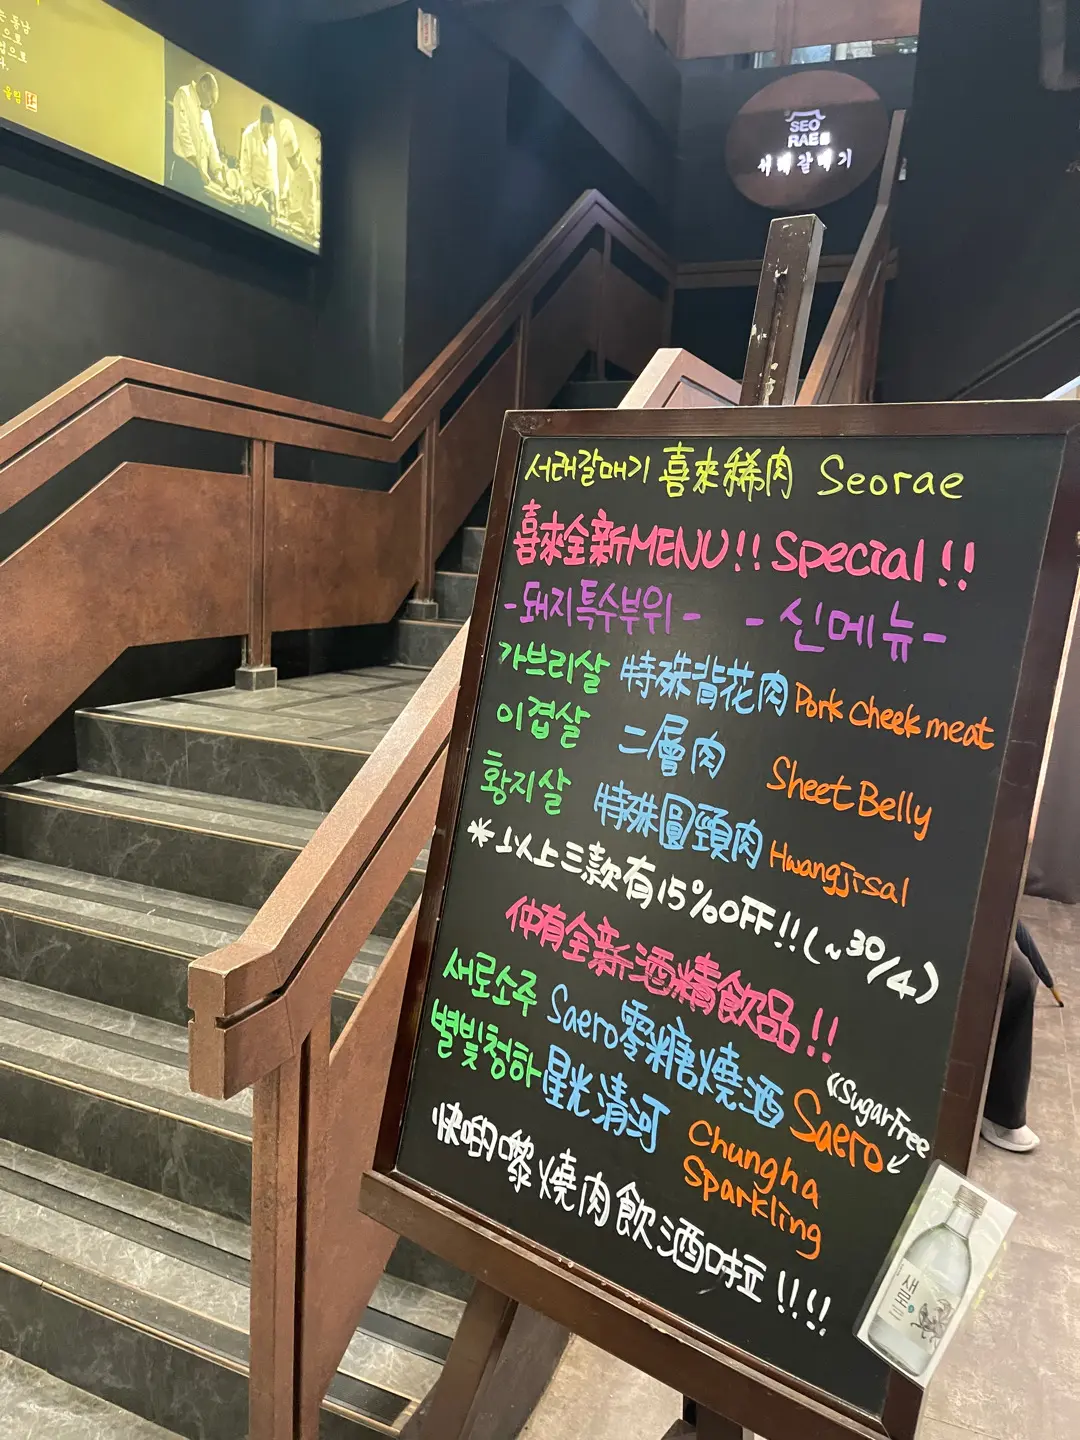 는 동남
으로
업으로
다.
울림
SEO
RAE
서래갈매기
서래갈매기 喜來稀肉 Seorae
喜來全新MENU!! Special!!
-돼지특수부위- -신메뉴-
가브리살 特殊背花肉 Pork cheek meat
이겹살 二層肉 Sheet Belly
황지살 特殊圓頸肉 Hwangjisal
*以上三款有15%OFF!!(~30/4)
仲有全新酒精飲品!!
새로소주 Saero零糖燒酒 Saero
《SugarFree
별빛청하 星光清河 Chungha
Sparkling
快啲嚟燒肉飲酒啦!!!!
새로